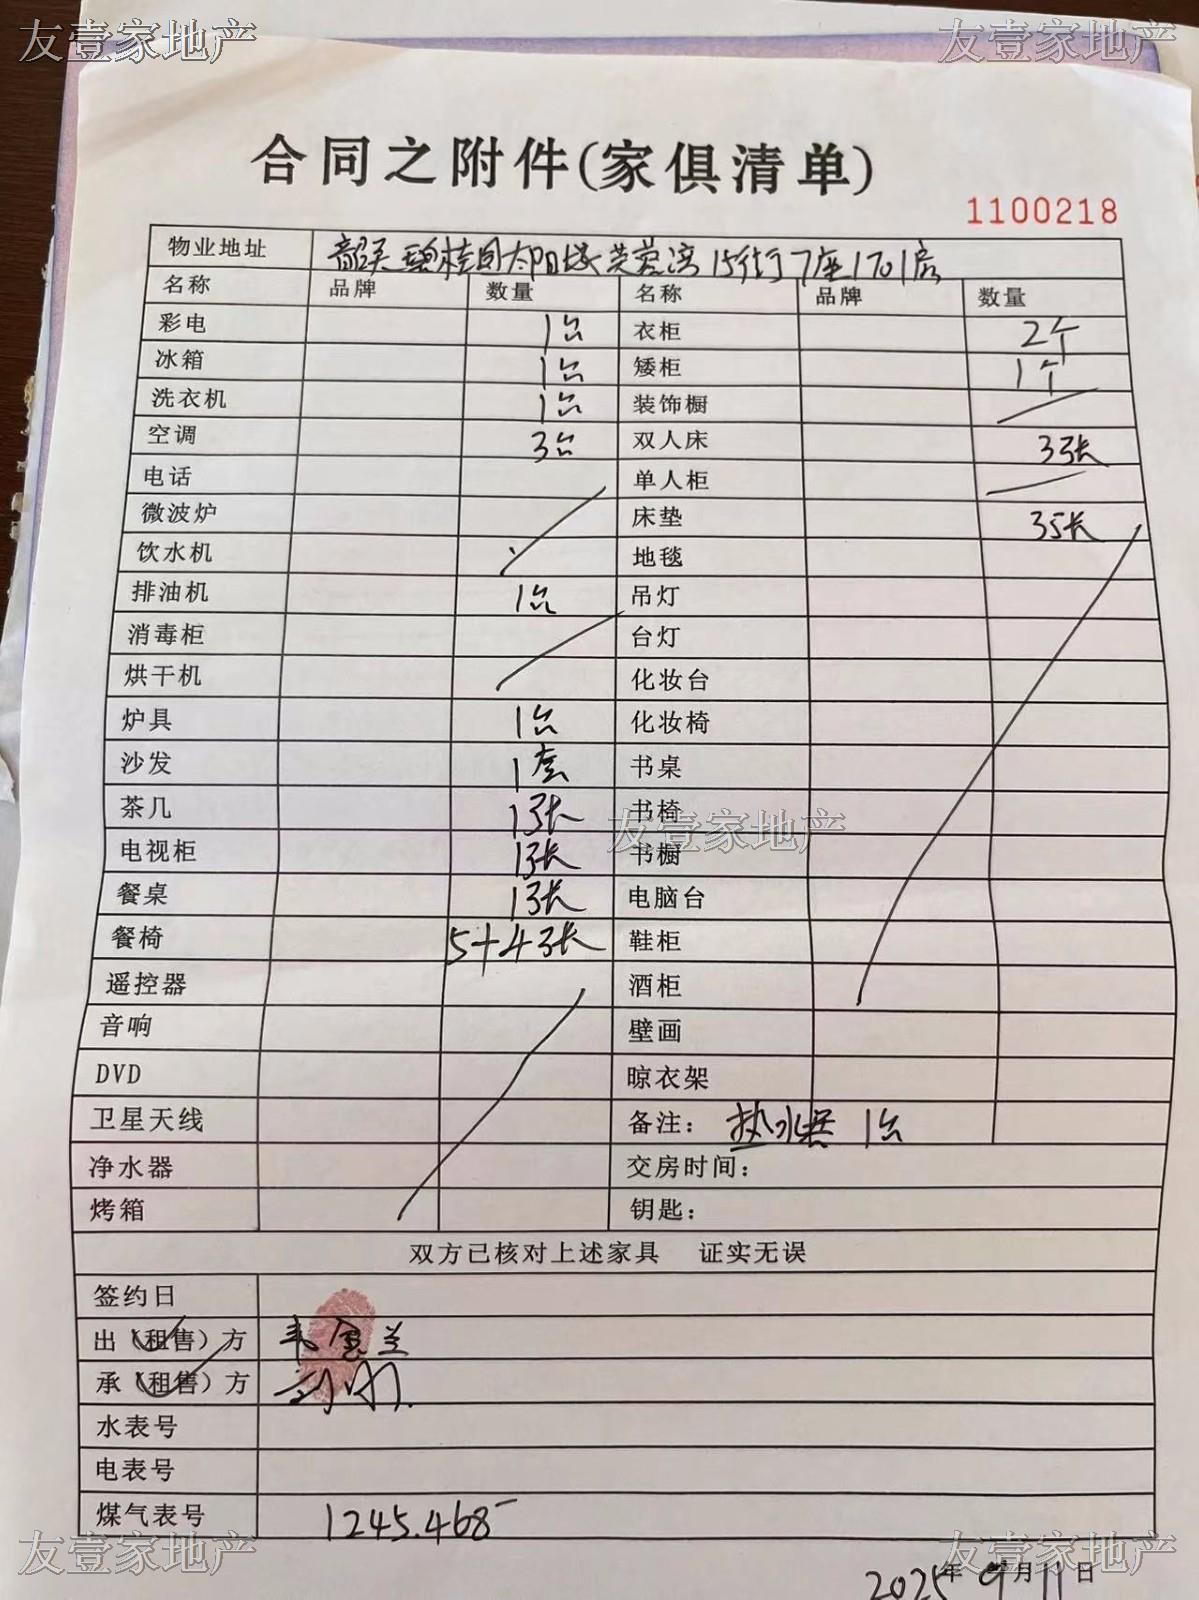 友壹家地产 友壹家地产
合同之附件(家俱清单)
1100218
物业地址 韶关碧桂园太阳城芙蓉湾15街7座1701房
名称 品牌 数量 名称 品牌 数量
彩电 1台 衣柜 2个
冰箱 1台 矮柜 1个
洗衣机 1台 装饰橱
空调 3台 双人床 3张
电话 单人柜
微波炉 床垫 35长
饮水机 地毯
排油机 1台 吊灯
消毒柜 台灯
烘干机 化妆台
炉具 1台 化妆椅
沙发 1套 书桌
茶几 1张 书椅
友壹家地产
电视柜 1张 书橱
餐桌 1张 电脑台
餐椅 5+4张 鞋柜
遥控器 酒柜
音响 壁画
DVD 晾衣架
卫星天线 备注: 热水器 1台
净水器 交房时间:
烤箱 钥匙:
双方已核对上述家具 证实无误
签约日
出(租售)方 韦金兰
承(租售)方
水表号
电表号
煤气表号 1245.468
友壹家地产 友壹家地产
2025年9月11日